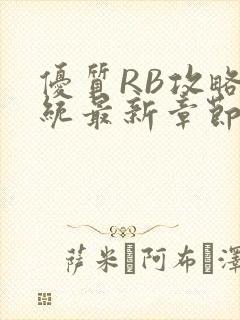 優質RB攻略
統最新章節
萨米阿布澤